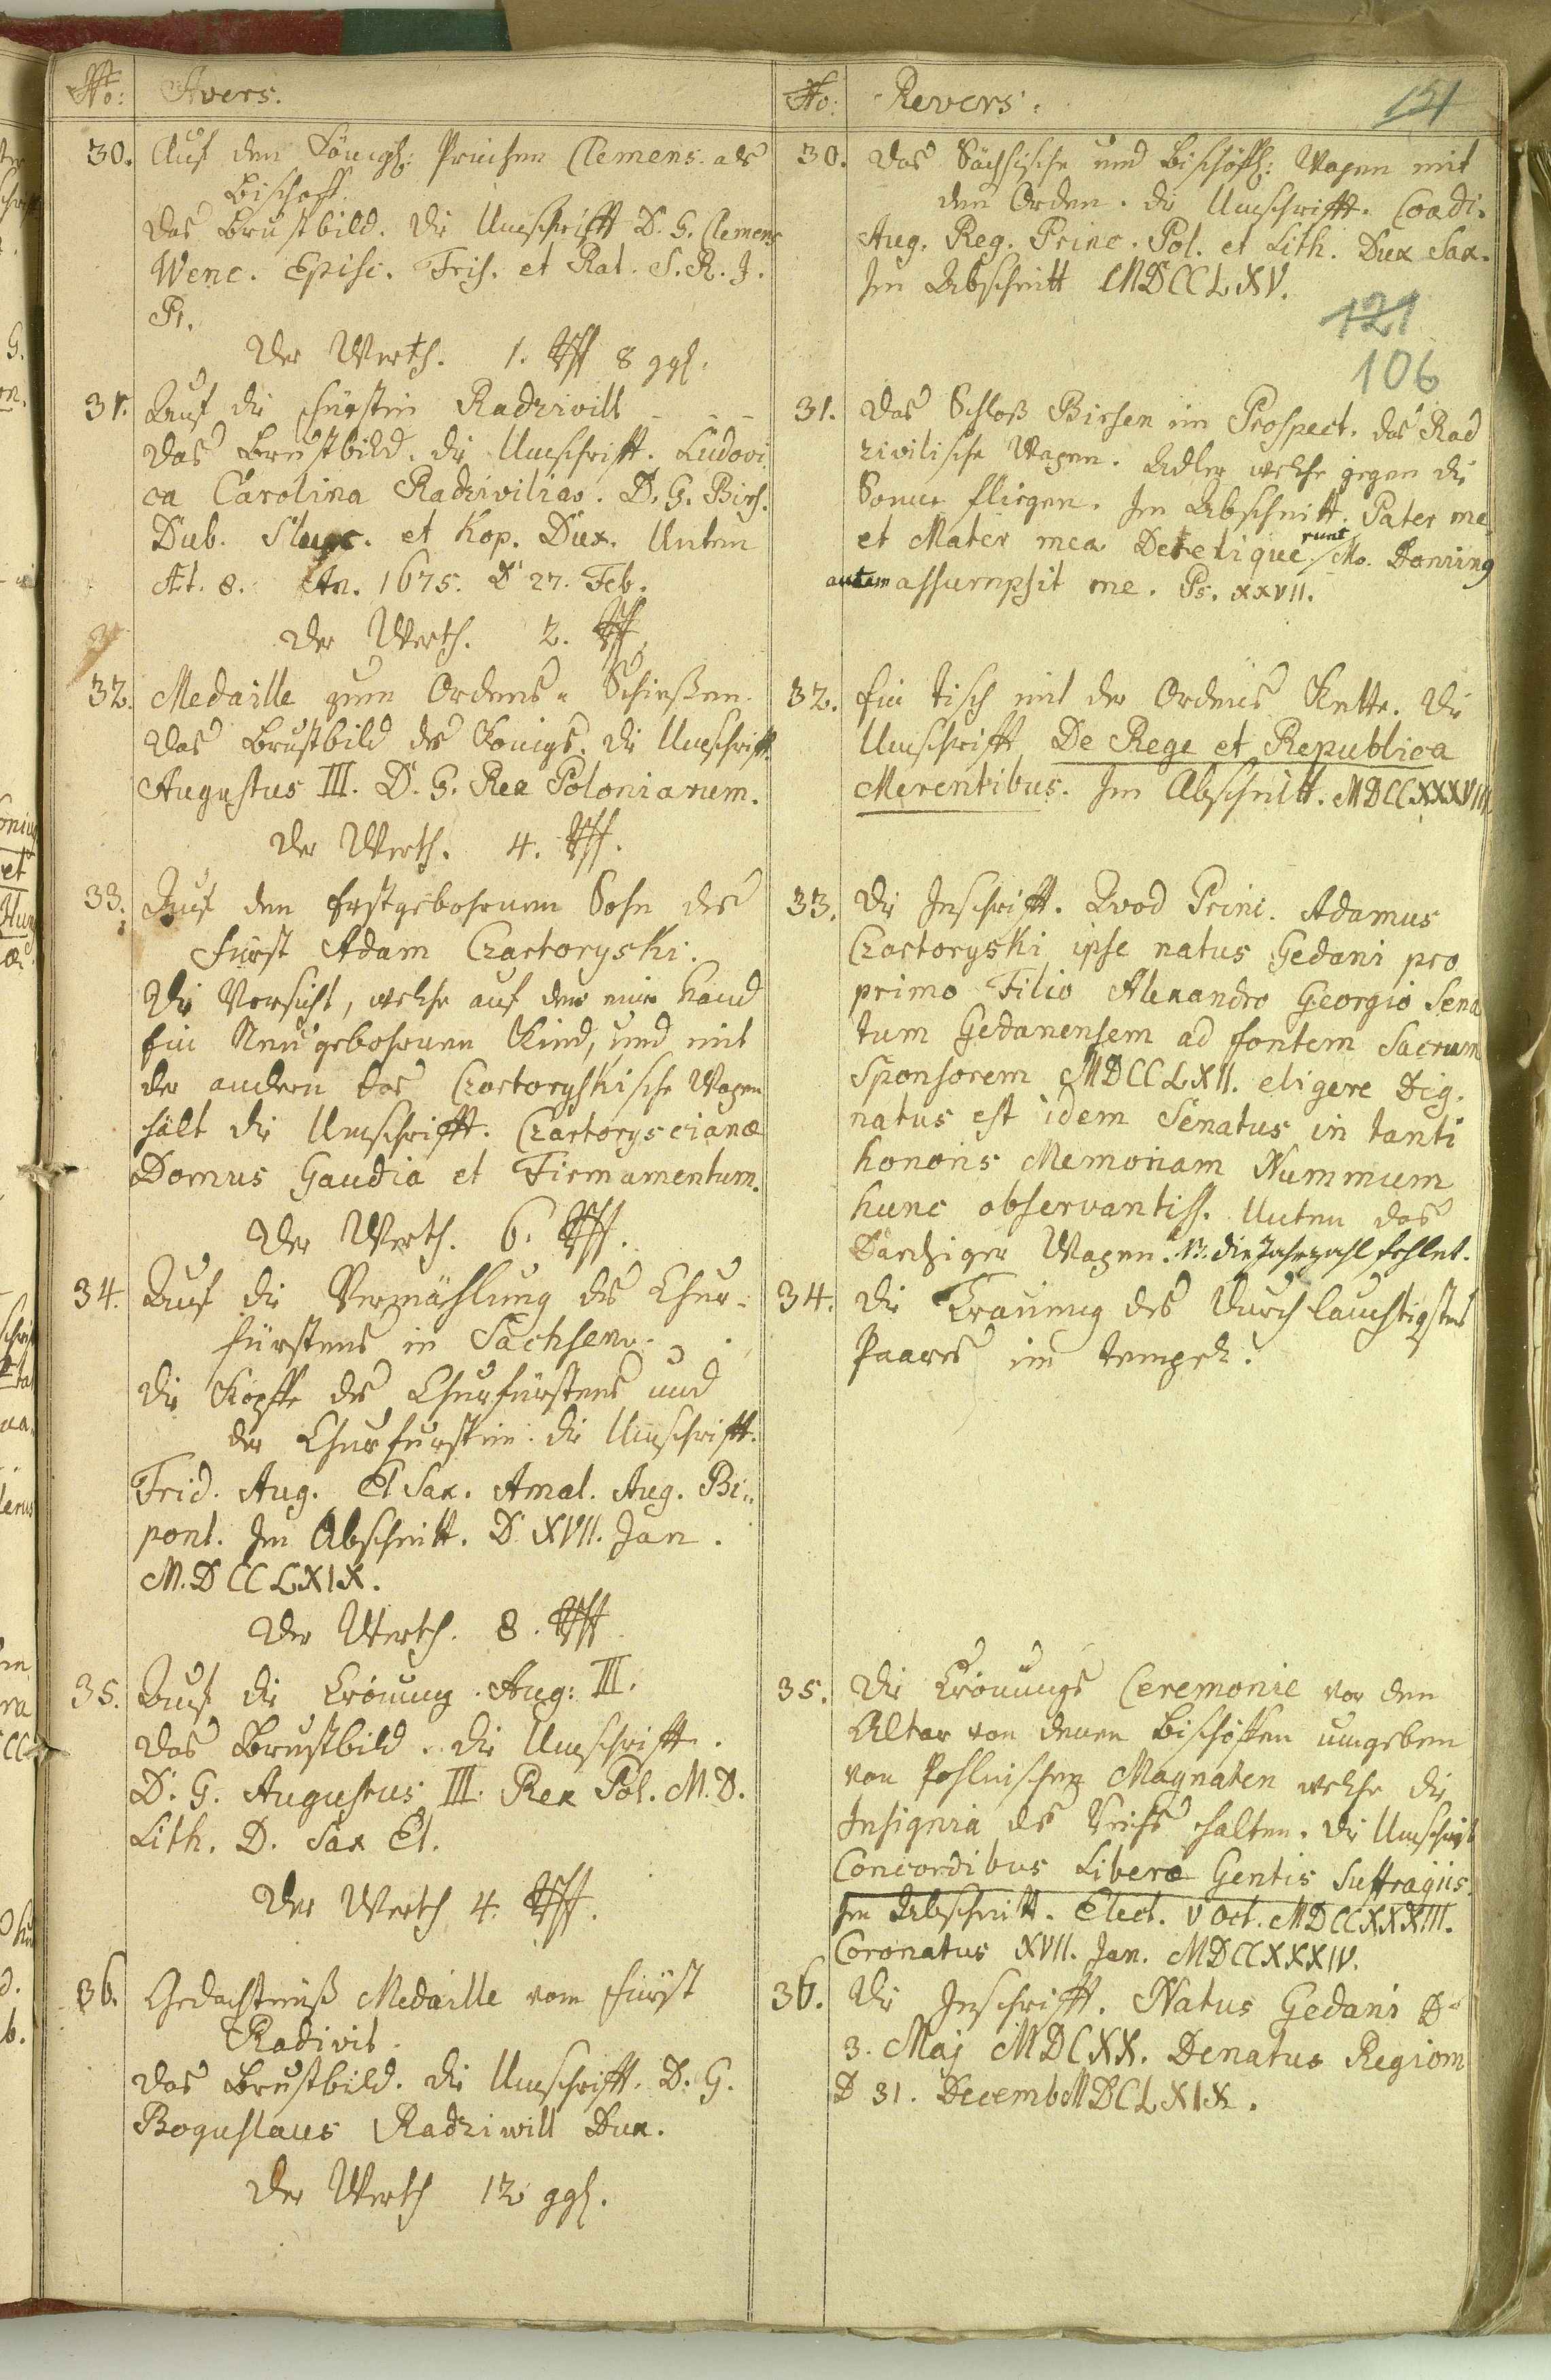 No: Avers.
30. Auf den Königl: Prinzen Clemens. als
Bischoff
das Brustbild. die Umschrifft D. G. Clemens
Wenc. Episc. Fris. et Rat. S. R. J.
Pr.
Der Werth. 1. Rth 8 ggl.
31. Auf die Fürstin Radzivill - - -
das Brustbild. die Umschrifft. Ludovi
ca Carolina Radzivilias. D. G. Birs.
Dub. Sluzc. et Kop. Dux. Unten
Æt. 8. An. 1675. D 27. Feb.
Der Werth. 2. Rth
32. Medaille zum Ordens- Schießen.
das Brustbild des Königs. die Umschrifft
Augustus III. D. G. Rex Poloniarum.
Der Werth. 4. Rth.
33. Auf den Erstgebohrnen Sohn des
Fürst Adam Czartoryski.
Die Vorsicht, welche auf der eine Hand
ein Neugebohrnen Kind, und mit
der andern das Czartoryskische Wapen
hält die Umschrifft. Czartoryscianæ
Domus Gaudia et Firmamentum.
Der Werth. 6. Rth.
34. Auf die Vermählung des Chur-
fürstens in Sachsen. - .
die Köpffe des Churfürstens und
der Churfurstin. die Umschrifft.
Frid. Aug. El Sax. Amal. Aug. Bi-
pont. Im Abschnitt. D XVII. Jan.
M.DCCLXIX.
Der Werth. 8. Rth
35. Auf die Crönung. Aug: III.
das Brustbild. die Umschrifft.
D. G. Augustus III. Rex Pol. M. D.
Lith. D. Sax El.
Der Werth 4. Rth.
36. Gedächtnüß Medaille vom Fürst
Radivil.
das Brustbild. die Umschrifft. D. G.
Boguslaus Radziwill Dux.
Der Werth 12 ggl.
No: Revers. 151
30. das Sächsische und Bischöffl: Wapen mit
dem Orden. die Umschrifft. Coadi.
Aug. Reg. Princ. Pol. et Lith. Dux Sax.
Im Abschnitt MDCCLXV.
121
106
31. das Schloß Birsen im Prospect. das Rad
zivilische Wapen. Adler welche gegen die
Sonne fliegen. Im Abschnitt. Pater me
et Mater mea Derelique runt Me. Dominq
autem assumpsit me. Ps. XXVII.
32. Ein Tisch mit der Ordens Kette. die
Umschrifft De Rege et Republica
Merentibus. Im Abschnitt. MDCCXXXVIII
33. Die Inschrifft. Quod Princ. Adamus
Czartoryski ipse natus Gedani pro
primo Filio Alexandro Georgio Sena
tum Gedanensem ad fontem Sacrum
Sponsorem MDCCLXII. eligere Dig.
natus est idem Senatus in tanti
honoris Memoriam Nummum
hunc observantiss. Unten das
Dantziger Wapen. N. die Jahrzahl fehlet.
34. Die Trauung des Durchlauchtigsten
Paares im Tempel.
35. Die Crönungs Ceremonie vor den
Altar von denen Bischöffen umgeben
von Pohlnischen Magnaten welche die
Insignia des Reichs halten. die Umschrift
Concordibus Liberæ Gentis Suffragiis.
Im Abschnitt. Elect. V Oct. MDCCXXXIII.
Coronatus XVII. Jan. MDCCXXXIV.
36. Die Inschrifft. Natus Gedani D.
3. Maj MDCXX. Denatus Regiom
D 31. Decemb MDCLXIX.